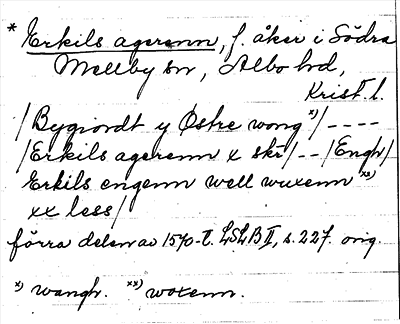 * Erkils agerenn, f. åker i Södra
Mellby sn, Albo hd,
Krist. l.
/Bygiordt y Østre wong x)/----
/Erkils agerenn x skr/--/Engh/
Erkils engenn well wuxenn xx)
xx less/
förra delen av 1570-t. LSLB II, s. 227. orig.
x) wangh. xx) woxenn.